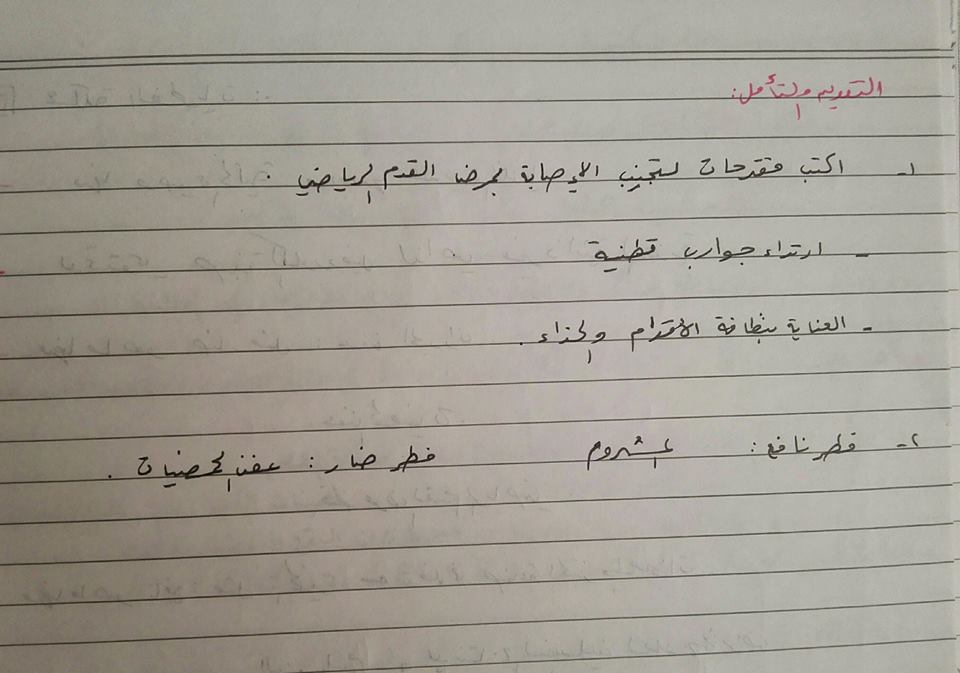 التقويم والتأمل:
١- اكتب مقترحات لتجنب الإصابة بمرض القدم الرياضي .
- ارتداء جوارب قطنية
- العناية بنظافة الأقدام والحذاء .
٢- فطر نافع: المشروم فطر ضار: عفن الحمضيات .